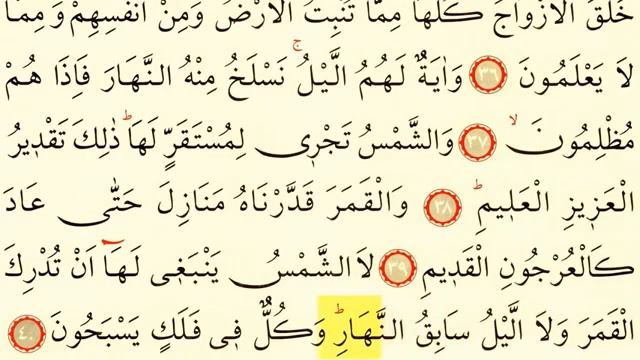 خَلَقَ الْاَزْوَاجَ كُلَّهَا مِمَّا تُنْبِتُ الْاَرْضُ وَمِنْ اَنْفُسِهِمْ وَمِمَّا
لَا يَعْلَمُونَ ﴿٣٦﴾ وَاٰيَةٌ لَهُمُ الَّيْلُۚ نَسْلَخُ مِنْهُ النَّهَارَ فَاِذَا هُمْ
مُظْلِمُونَۙ ﴿٣٧﴾ وَالشَّمْسُ تَجْرٖي لِمُسْتَقَرٍّ لَهَاؕ ذٰلِكَ تَقْدٖيرُ
الْعَزٖيزِ الْعَلٖيمِؕ ﴿٣٨﴾ وَالْقَمَرَ قَدَّرْنَاهُ مَنَازِلَ حَتّٰى عَادَ
كَالْعُرْجُونِ الْقَدٖيمِ ﴿٣٩﴾ لَا الشَّمْسُ يَنْبَغٖى لَهَٓا اَنْ تُدْرِكَ
الْقَمَرَ وَلَا الَّيْلُ سَابِقُ النَّهَارِؕ وَكُلٌّ فٖى فَلَكٍ يَسْبَحُونَ ﴿٤٠﴾